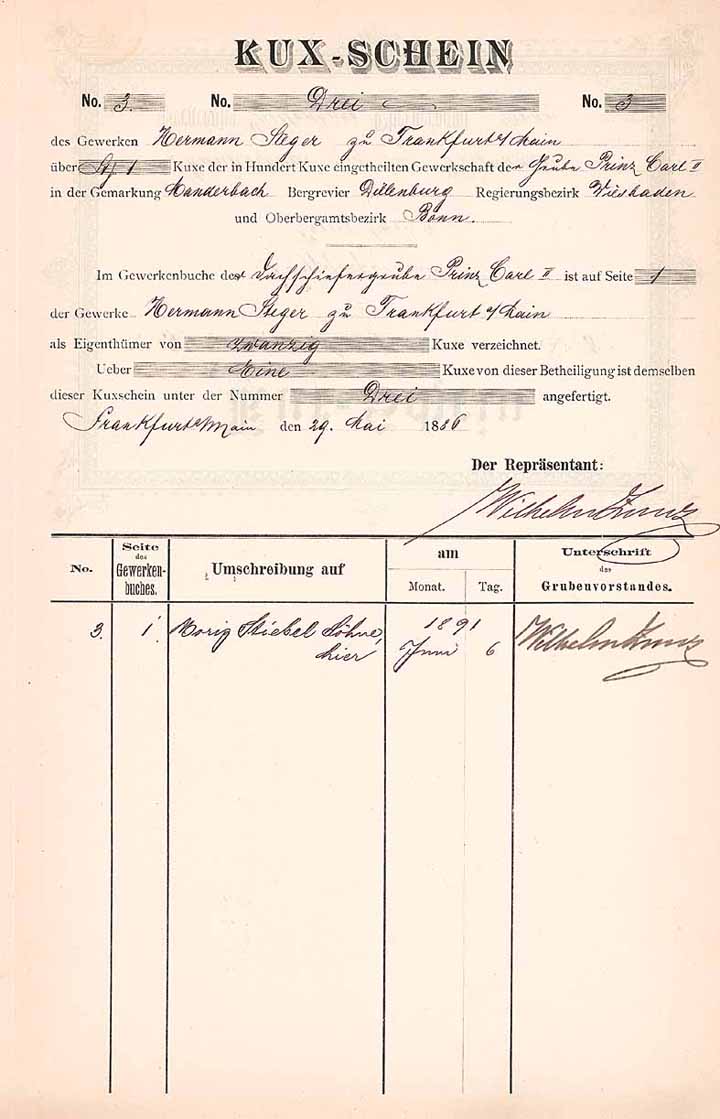 KUX-SCHEIN
No. 3. No. Drei No. 3
des Gewerken Hermann Steger zu Frankfurt a/Main
über St. 1 Kuxe der in Hundert Kuxe eingetheilten Gewerkschaft der Grube Prinz Carl II
in der Gemarkung Manderbach Bergrevier Dillenburg Regierungsbezirk Wiesbaden
und Oberbergamtsbezirk Bonn.
Im Gewerkenbuche der Dachschiefergrube Prinz Carl II ist auf Seite 1
der Gewerke Hermann Steger zu Frankfurt a/Main
als Eigenthümer von zwanzig Kuxe verzeichnet.
Ueber Eine Kuxe von dieser Betheiligung ist demselben
dieser Kuxschein unter der Nummer Drei angefertigt.
Frankfurt a/Main den 29. Mai 1886
Der Repräsentant:
Wilhelm
No. Seite des Gewerken-buches. Umschreibung auf am Monat. Tag. Unterschrift des Grubenvorstandes.
3. 1. Moriz Stiebel Söhne, 1891 Wilhelm
hier Juni 6